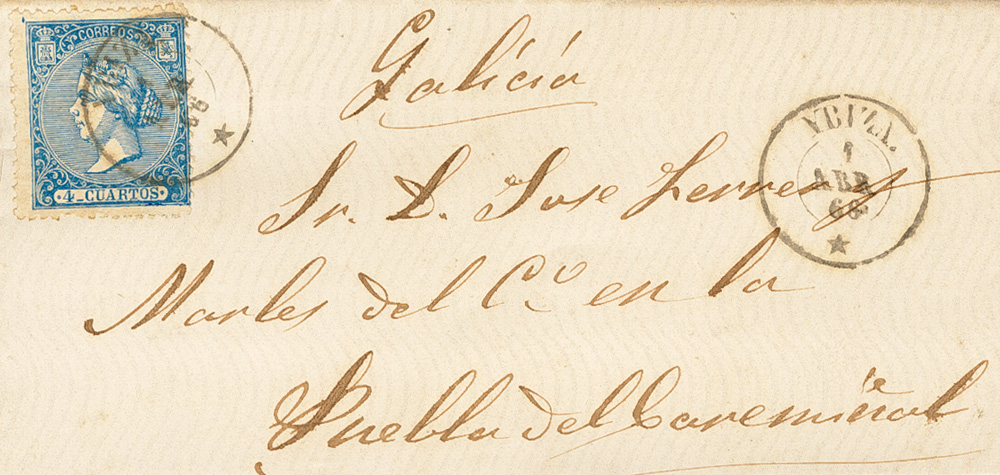 CORREOS
4 CUARTOS
Galicia
YBIZA.
1
ABR
66
Sr. D. Jose Ferrer y
Marles del Cº. en la
Puebla del Caremiñal